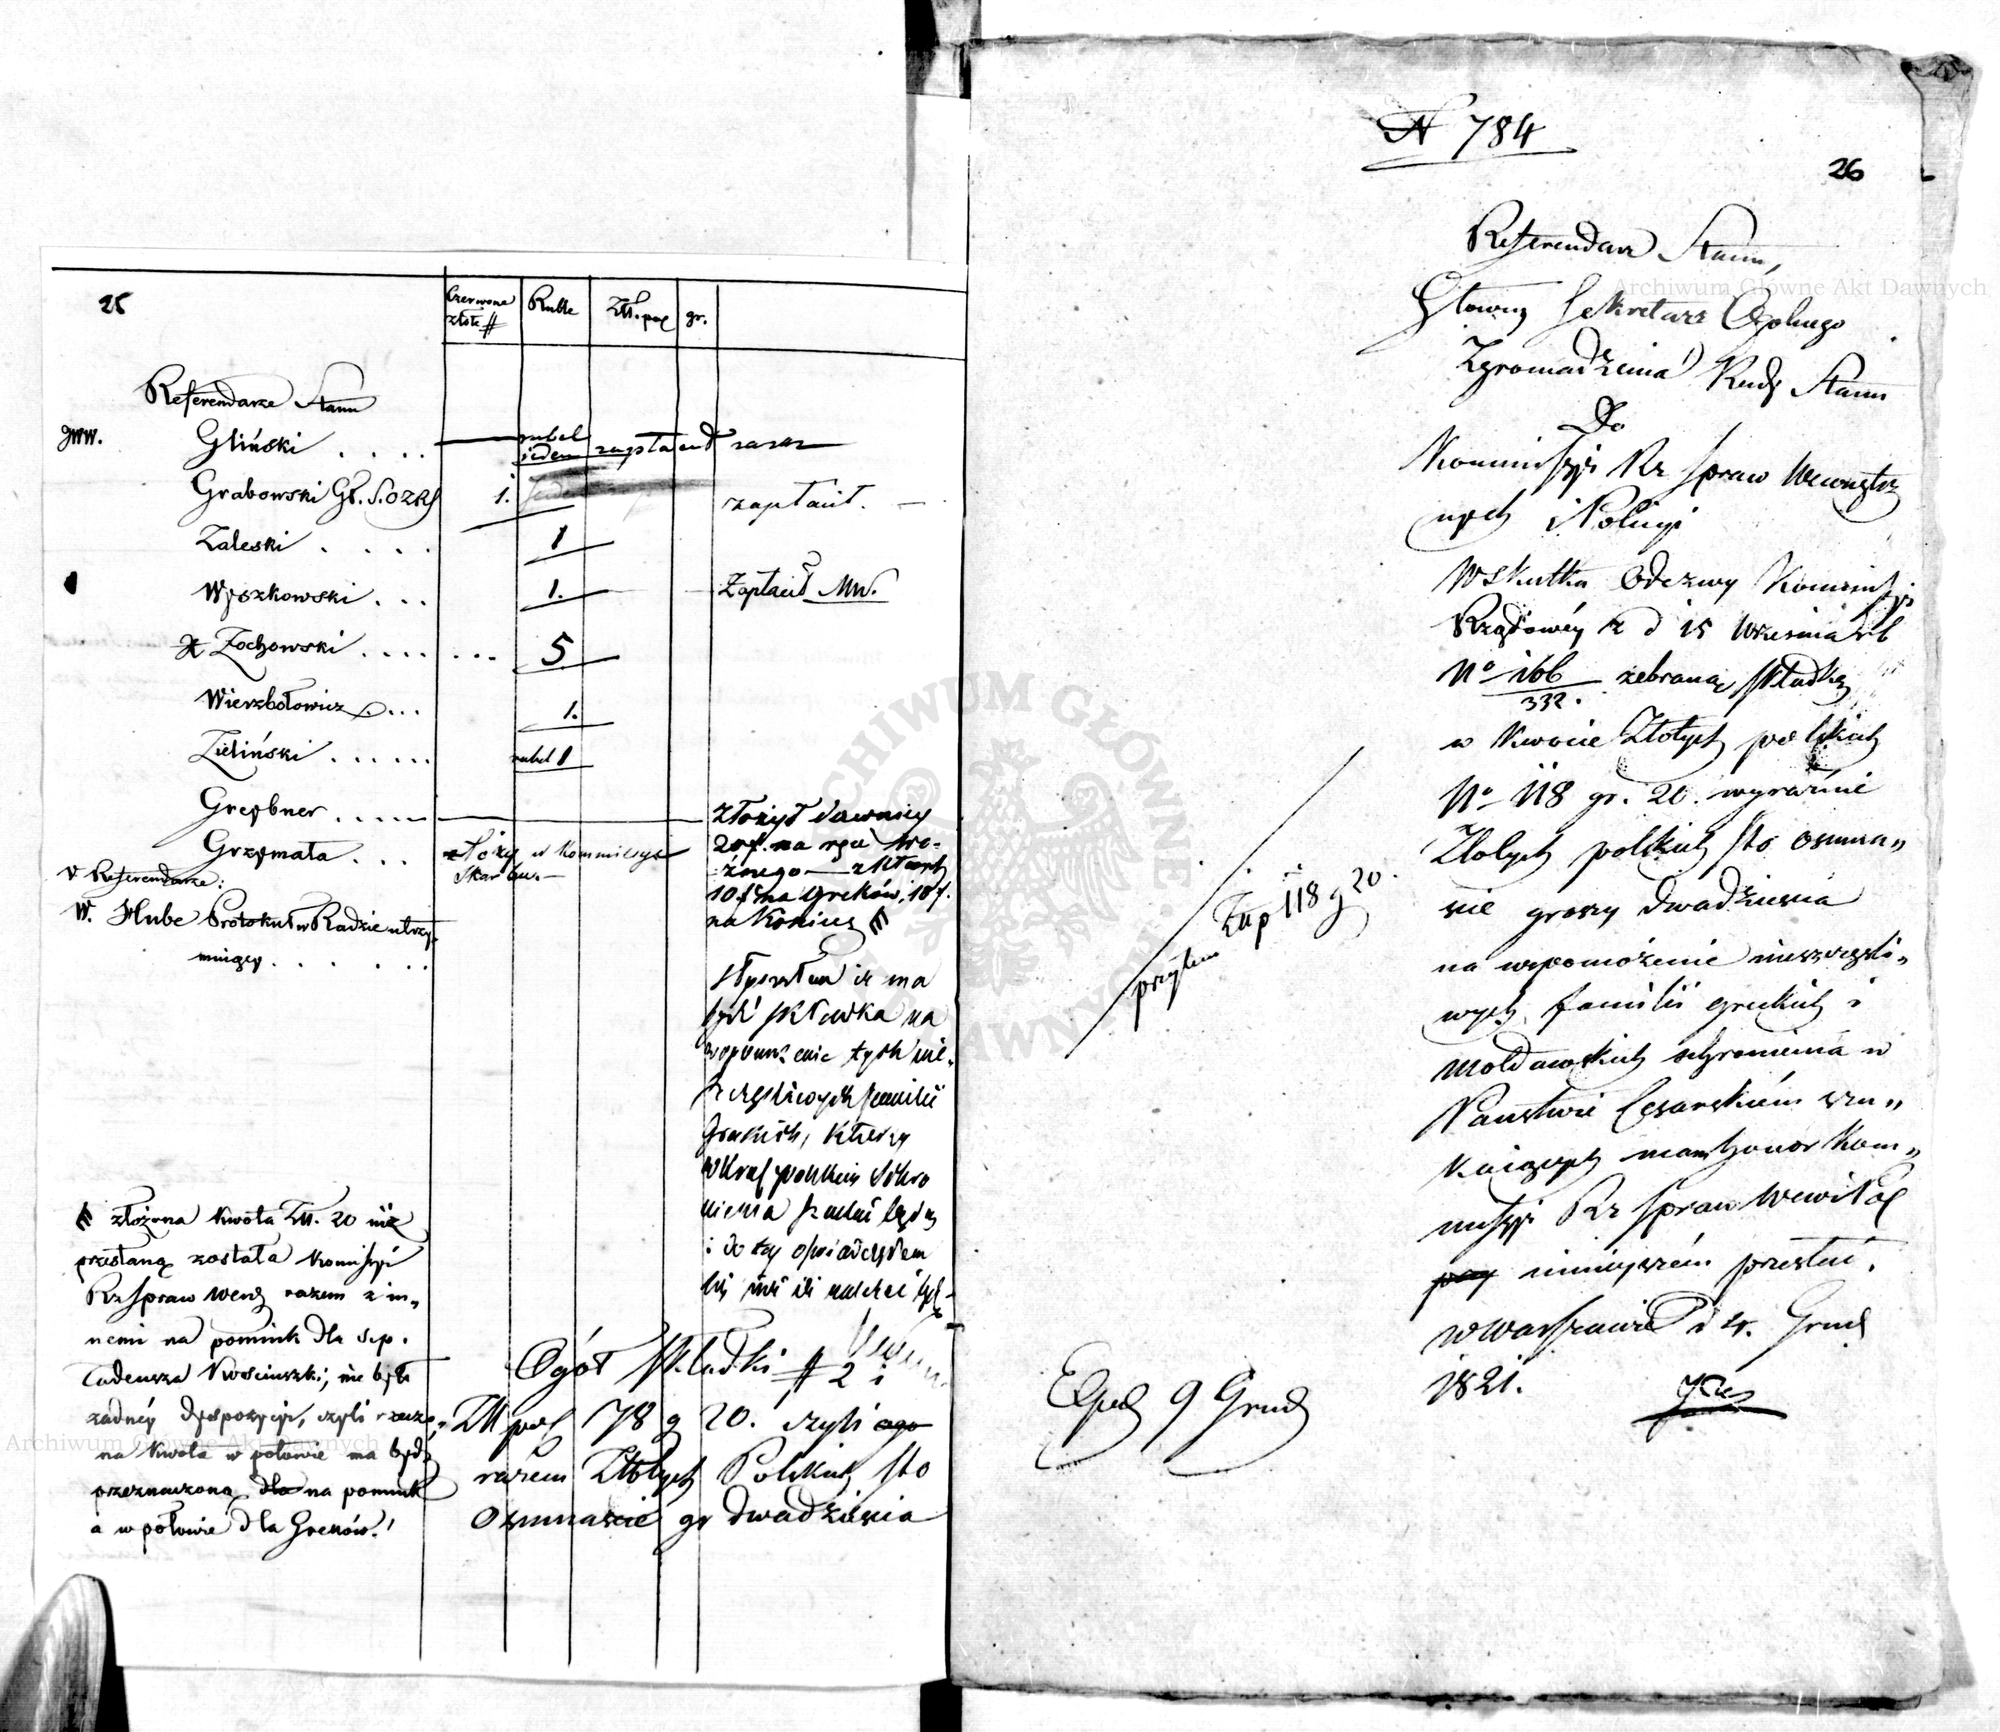 25
Czerwone złote #
Rubli
Złł. pol
gr.
Referendarze Stanu
JWW.
Gliński . . . . rubel jeden zapłacił zaraz
Grabowski Gł. S. OZRS 1. zapłacił. —
Zaleski . . . . 1
Wyszkowski . . . 1. Zapłacił Mw.
Żochowski . . . . . . . 5
Wierzbołowicz . . . 1.
Zieliński . . . . . . rubel 1
Greybner . . . . .
Grzymała . . . złoży w Kommissyi
Skarbu. —
złożył dawniey
20 f. na ręce
źnego — z których
10 f. na Greków, 10 f.
na Kościusz
V Referendarze:
W. Hube Protokuł w Radzie utrzy-
muiący . . . . . . .
Słyszałem iż ma
być składka na
wspomożenie tych nie-
szczęśliwych familii
Greckich, którzy
w Kraj polskim schro
nienia szukać będą
złożona kwota Złł. 20 nie
przesłaną została Kommissyi
Rz Spraw Wewn razem z in„
nemi na pomnik dla s.p.
Tadeusza Kościuszki, nie było
żadnéy dyspozycyi, czyli rzeczo„
na kwota w połowie ma bydź
przeznaczoną dla na pomnik
a w połowie dla Greków.
Ogół składki # 2 i
Złł pol 78 g 20. czyli ogo
razem Złotych Polskich sto
osmnaście gr dwadzieścia
N 784
26
Referendarz Stanu,
Głowny Sekretarz Ogolnego
Zgromadzenia Rady Stanu
Do
Kommissyi Rz Spraw Wewnętrz
nych i Policyi
W skutku Odezwy Kommissyi
Rządowéy z d 15 Września r b
No 166/332. zebraną składkę
w kwocie Złotych polskich
No 118 gr. 20. wyraźnie
Złotych polskich sto osmna„
ście groszy dwadzieścia
na wspomożenie nieszczęśli„
wych familii greckich i
mołdawskich schronienia w
Państwie Cesarskiém szu„
kaiących mam honor Kom„
missyi Rz Spraw Wew i Pol
przy ninieyszém przesłać.
w Warszawie d 4. Grud
1821.
przytem Złłp 118 g 20.
Exped 9 Grud
Archiwum Główne Akt Dawnych
Archiwum Główne Akt Dawnych
ARCHIWUM GŁÓWNE AKT DAWNYCH